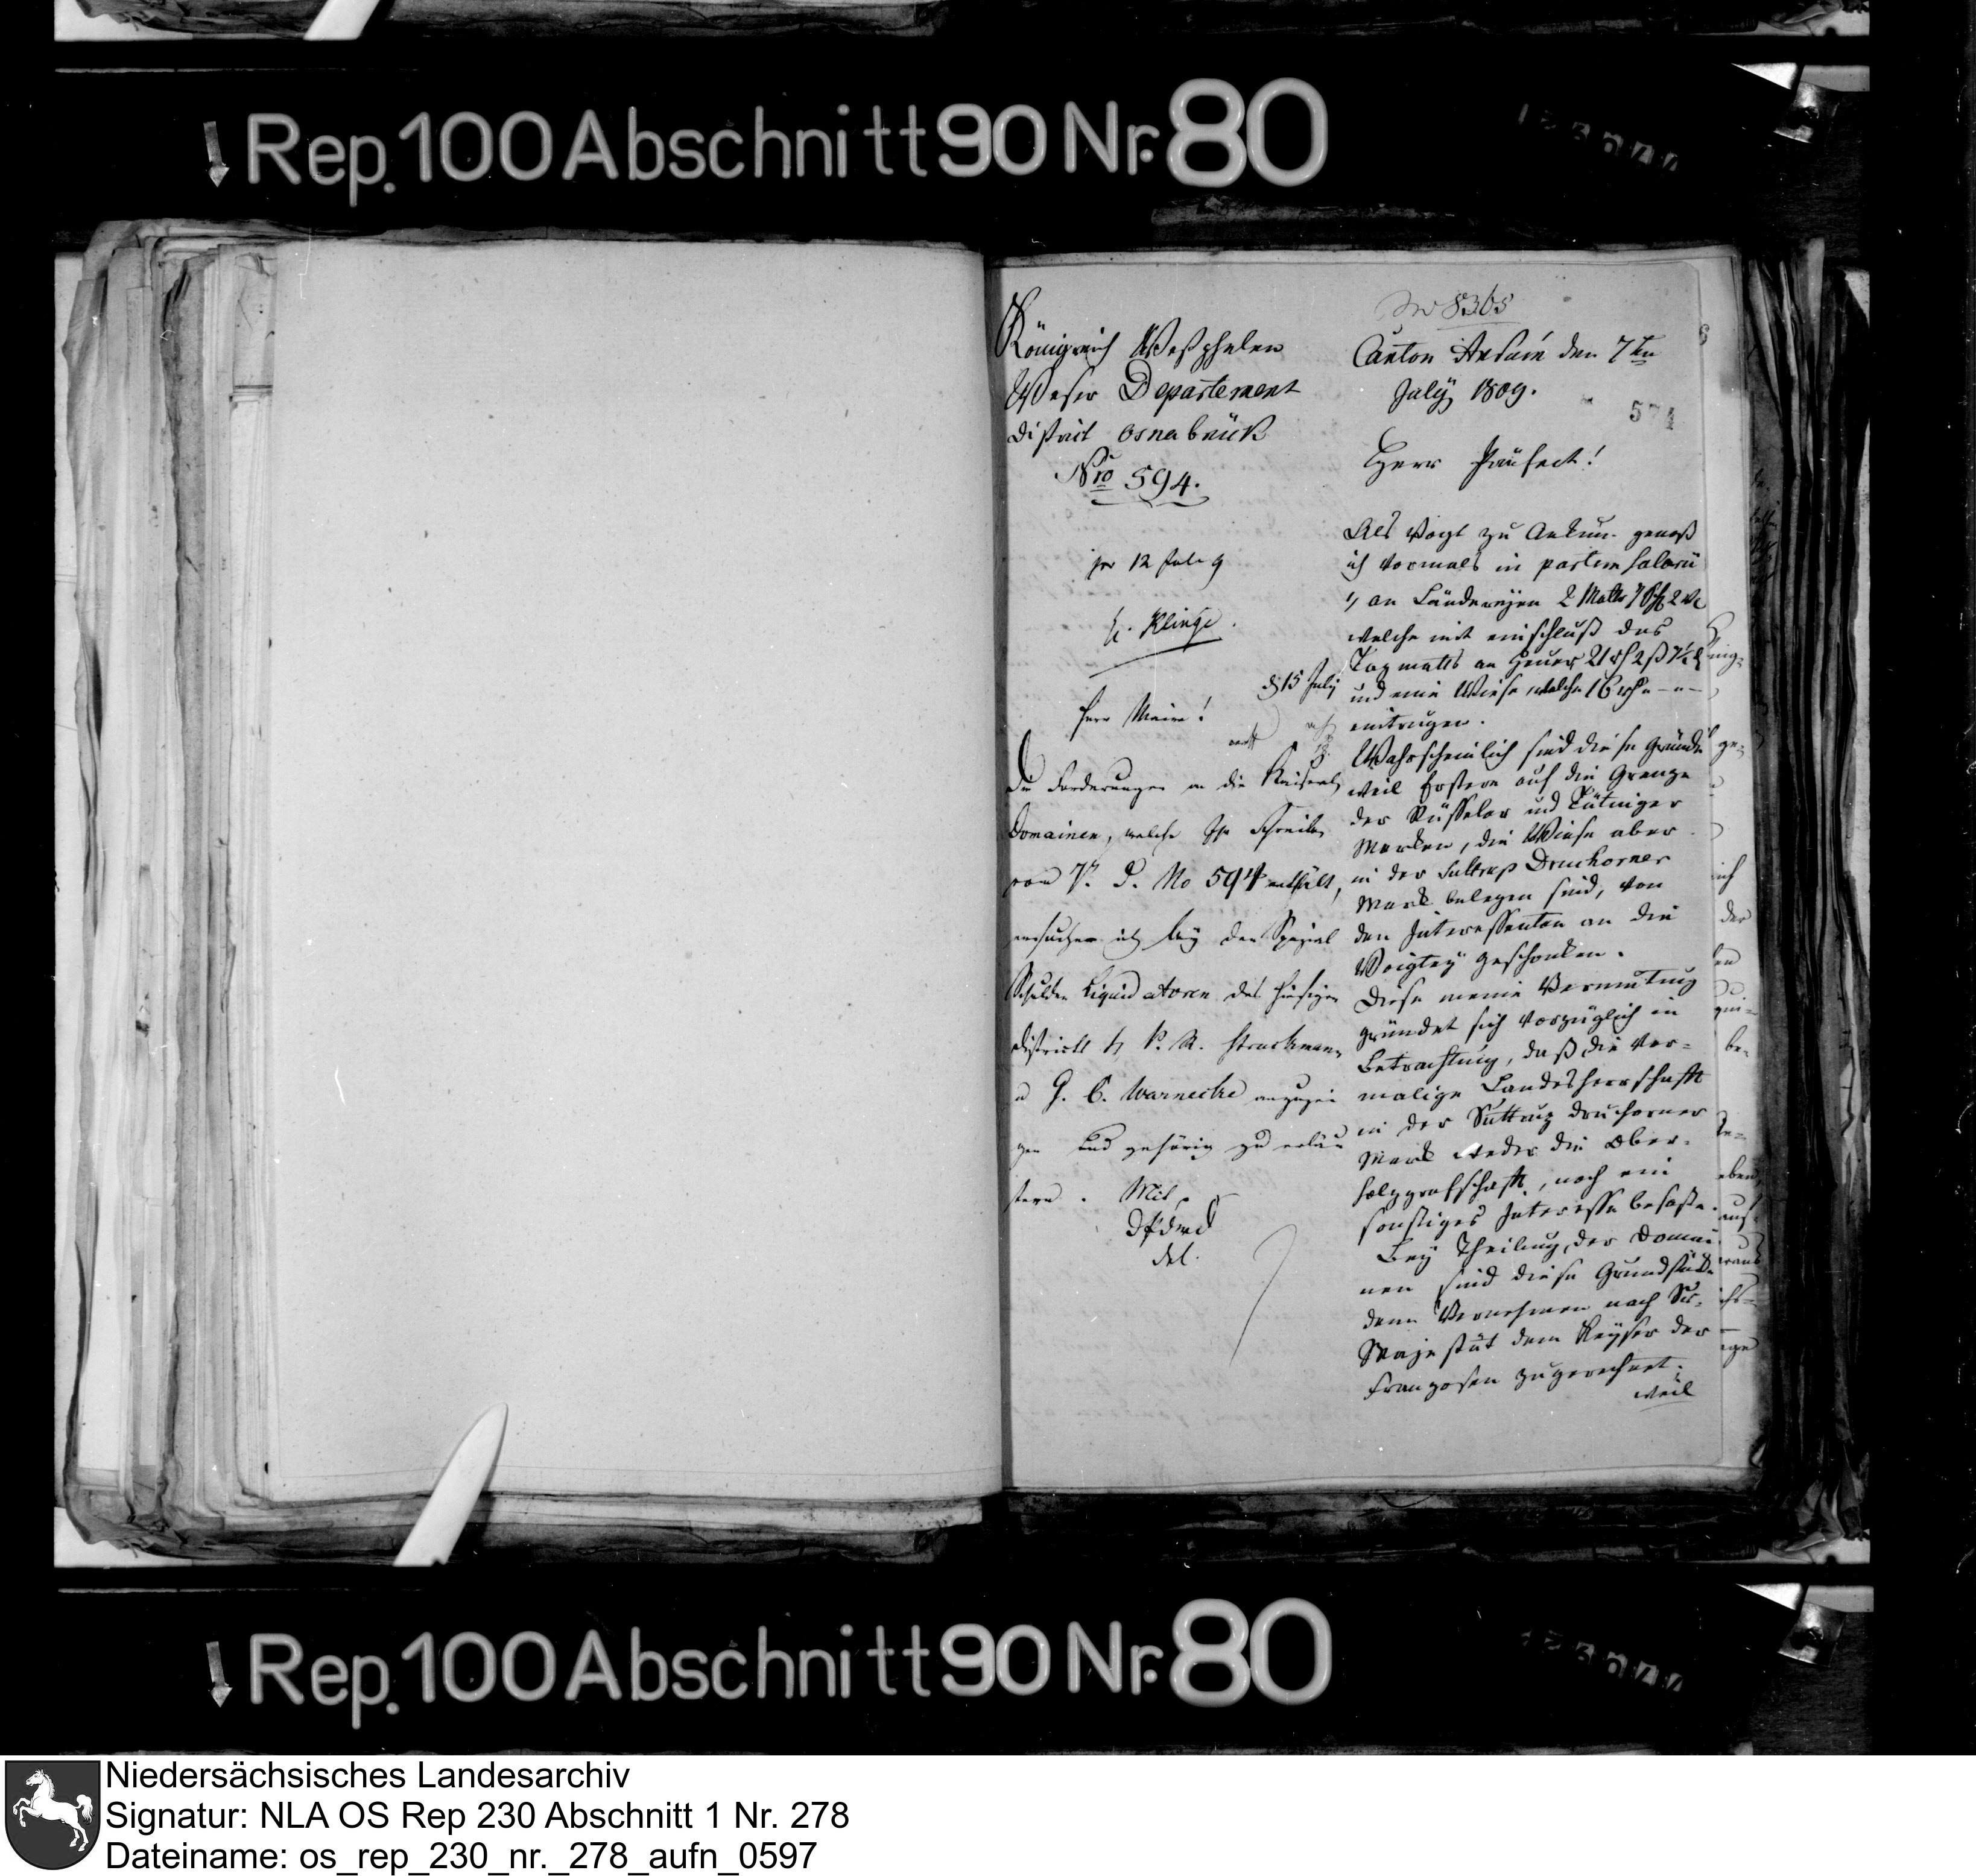 Rep. 100 Abschnitt 90 Nr. 80
Königreich Westphalen
Weser Departement
District Osnabrück
Nro 594.
pr 12 Jul 9
H. Klinge.
d 15 July
Herr Maire!
Die Forderungen an die Kaiserl
Domainen, welche Ihr Schreiben
vom 7. d. No 594 enthält,
ersuche ich bey den Spezial
Schulden Liquidatoren des hiesigen
Districts H P. R. Struckmann
u G. C. Warnecke anzuzei
gen und gehörig zu erläu
tern.
No 8365
Canton Ankum den 7ten
July 1809.
574
Herr Präfect!
Als Vogt zu Ankum genoß
ich vormals in partem salarii
1, an Ländereyen 2 Malter 7 2
welche mit einschluß des
an Heuer 21 2 ß 7½
und eine Wiese, welche 16
eintrugen.
Wahrscheinlich sind diese Gründe
weil Erstere auf die Grenze
der Rüsseler und Tütinger
Marken, die Wiese aber
in der Suttrup Druchorner
Mark belegen sind, von
den Interessenten an die
Voigtey geschenken.
Diese meine Vermutung
gründet sich vorzüglich in
Betrachtung, daß die vor=
malige Landesherrschaft
in der Suttrup Druchorner
Mark weder die Ober-
holzgrafschaft, noch ein
sonstiges Interesse besaße.
Bey Theilung der Domai
nen sind diese Grundstücke
dem Vernehmen nach Sr.
Majestät dem Keyser der
Franzosen zugerechnet.
weil
Rep. 100 Abschnitt 90 Nr. 80
Niedersächsisches Landesarchiv
Signatur: NLA OS Rep 230 Abschnitt 1 Nr. 278
Dateiname: os_rep_230_nr._278_aufn_0597